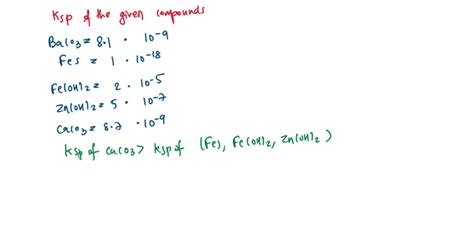 Ksp of the given compounds
BaCO3 = 8.1 · 10-9
FeS = 1 · 10-18
Fe(OH)2 = 2 · 10-5
Zn(OH)2 = 5 · 10-7
CaCO3 = 8.7 · 10-9
Ksp of CaCO3 > Ksp of (FeS, Fe(OH)2, Zn(OH)2)